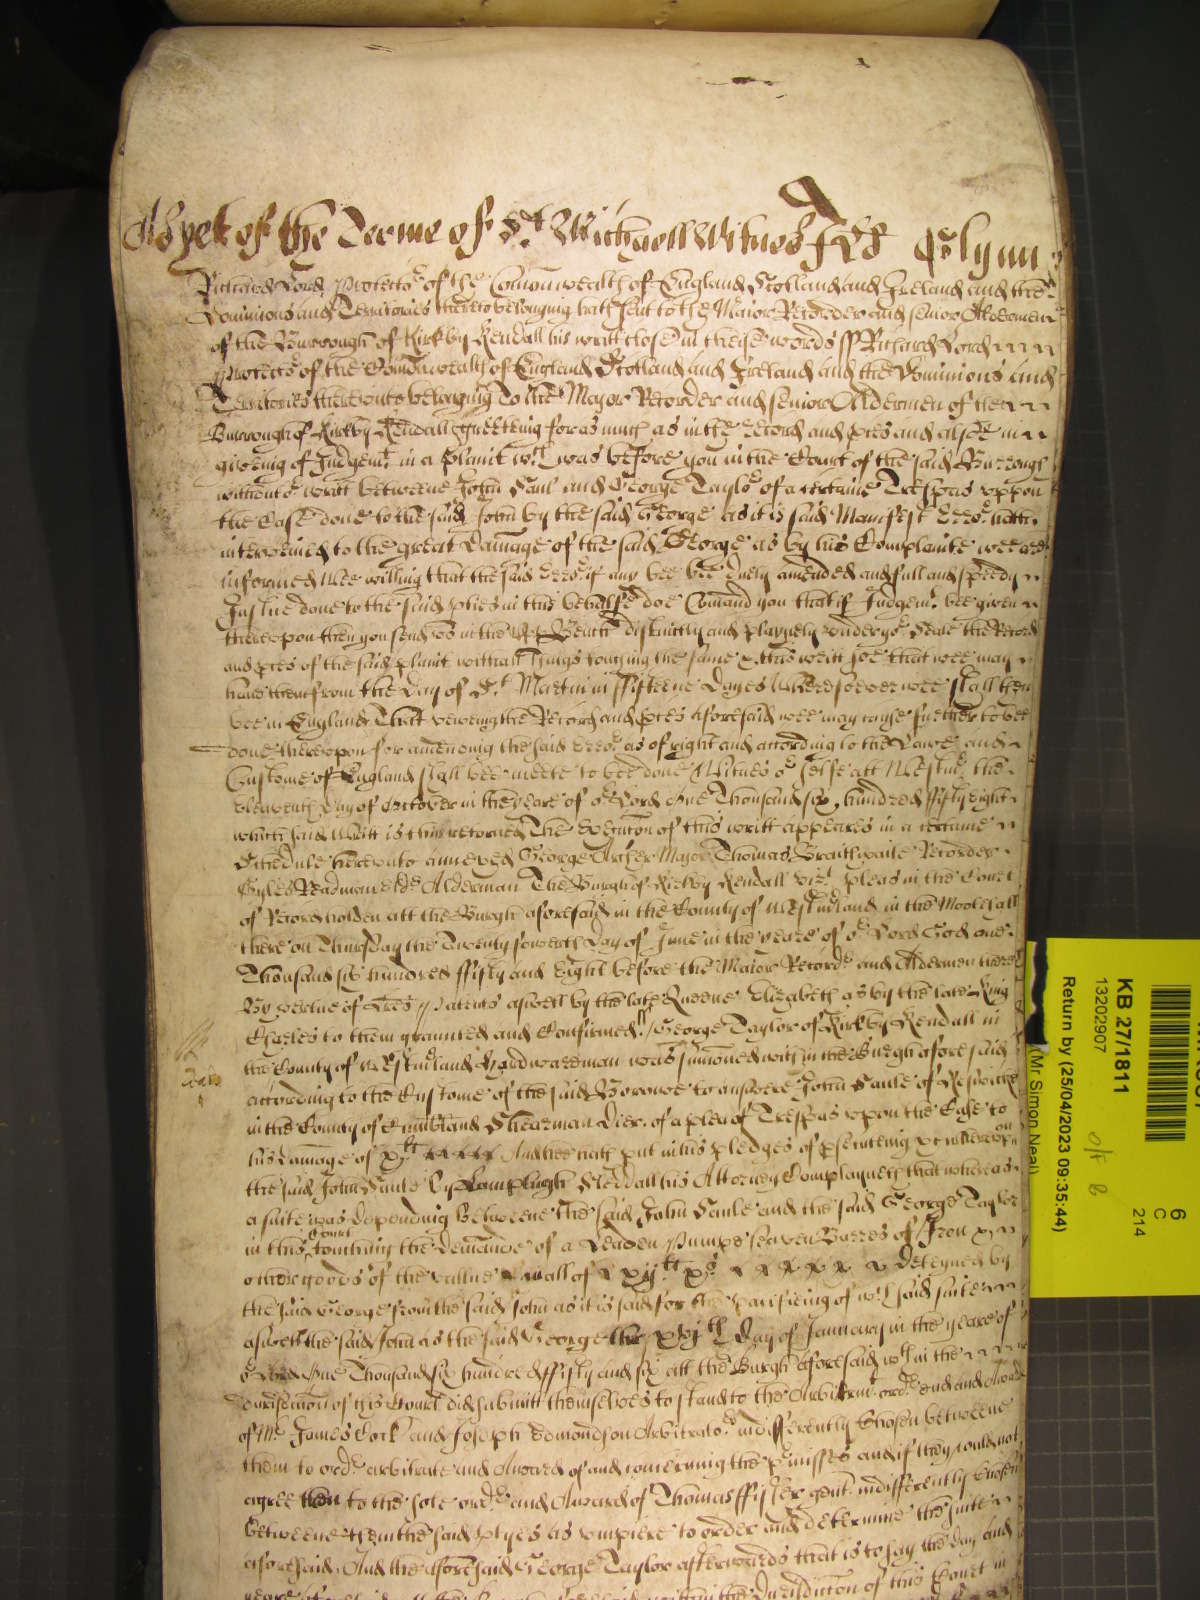 As yet of the Terme of St Michaell Witnes J Glynn
Richard Lord Protector of the Commonwealth of England Scotland and Ireland and the
Dominions and Territories thereto belonging hath sent to the Maior Recorder and senior Aldermen
of the Burrough of Kirkby Kendall his writt closed in theise words ss Richard Lord
Protector of the Comonwealth of England Scotland and Ireland and the Dominions and
Territories thereunto belonging To the Major Recorder and senior Aldermen of the
Burrough of Kirkby Kendall greeteing forasmuch as in the record and pces and alsoe in
giveing of Judgemt in a plaint wch was before you in the Court of the said Burrough
without or writt betweene John Saul and George Taylor of a certaine Trespas uppon
the Case done to the said John by the said George as it is said Manifest Error hath
intervened to the great Damage of the said George as by his Complainte wee are
informed Wee willing that the said Error if any bee bee duely amended and full and speedy
Justice done to the said pties in this behalfe doe Comand you that if Judgemt bee given
thereupon then you send to us in the Upp Bench distinctly and playnely under yor Seale the Record
and pces of the said plaint with all things touching the same & this writt soe that wee may
have them from the Day of St Martin in fifteene Dayes Wheresoever wee shall then
bee in England That viewing the Record and pces aforesaid wee may cause further to bee
done thereupon for amending the said Error as of right and according to the Lawe and
Custome of England shall bee meete to bee done Witnes or selfe att Westmr the
Eleaventh Day of October in the yeare of or Lord One Thousand six hundred fifty Eight
which said Writt is thus retorned The Execucon of this writt appeares in a certaine
Schedule hereunto annexed George Archer Major Thomas Braithwaite Recorder
Gyles Readman eldr Alderman The Burgh of Kirkby Kendall vizt pleas in the Court
of Record holden att the Burgh aforesaid in the County of Westmerland in the Mootehall
there on Thursday the Twenty fowerth Day of June in the yeare of or Lord God one
Thousand six hundred fifty and Eight before the Maior Recordr and Aldermen there
By vertue of Lres Patents aswell by the late Queene Elizabeth as by the late King
Charles to them graunted and Confirmed ss George Taylor of Kirkby Kendall in
the County of Westmerland Hardwareman was sumoned within the Burgh aforesaid
according to the Custome of the said Borrowe to answere John Saule of Keswicke
in the County of Cumbland Shearman Dier of a plea of Trespas upon the Case to
his Damage of And hee hath put in his pledges of psecuteing &c Whereupon
the said John Saule by Lamplugh Kendall his Attorney Complayneth that whereas
a suite was depending Betweene the said John Saule and the said George Taylor
in this Court touching the Demande of a Leaden Pumpe seaven Barres of Iron &
other goods of the vallue in all of xijli xs Deteyned by
the said George from the said John as it is said for the pacifieing of wch said suite
aswell the said John as the said George the xvjth Day of January in the yeare of
or Lord One Thousand six hundred fifty and six att the Burgh aforesaid wthin the
Jurisdiccon of this Court did submitt themselves to stand to the Arbitremt ordr end and Award
of Mr James Cock and Joseph Edmondson Arbitrators indifferently Chosen betweene
them to ordr arbitrate and Award of and concerning the pmisses and if they could not
agree then to the sole ordr and Award of Thomas Fisher gent indifferently Chosen
betweene them the said ptyes as umpiere to order and determine the suite
aforesaid And the aforesaid George Taylor afterwards that is to say the day and
yeare aforesaid att the Burgh aforesaid within the Jurisdiccon of this Court in
KB 27/1811
13202907
Return by (25/04/2023 09:35:44)
(Mr Simon Neal)
6
C
214